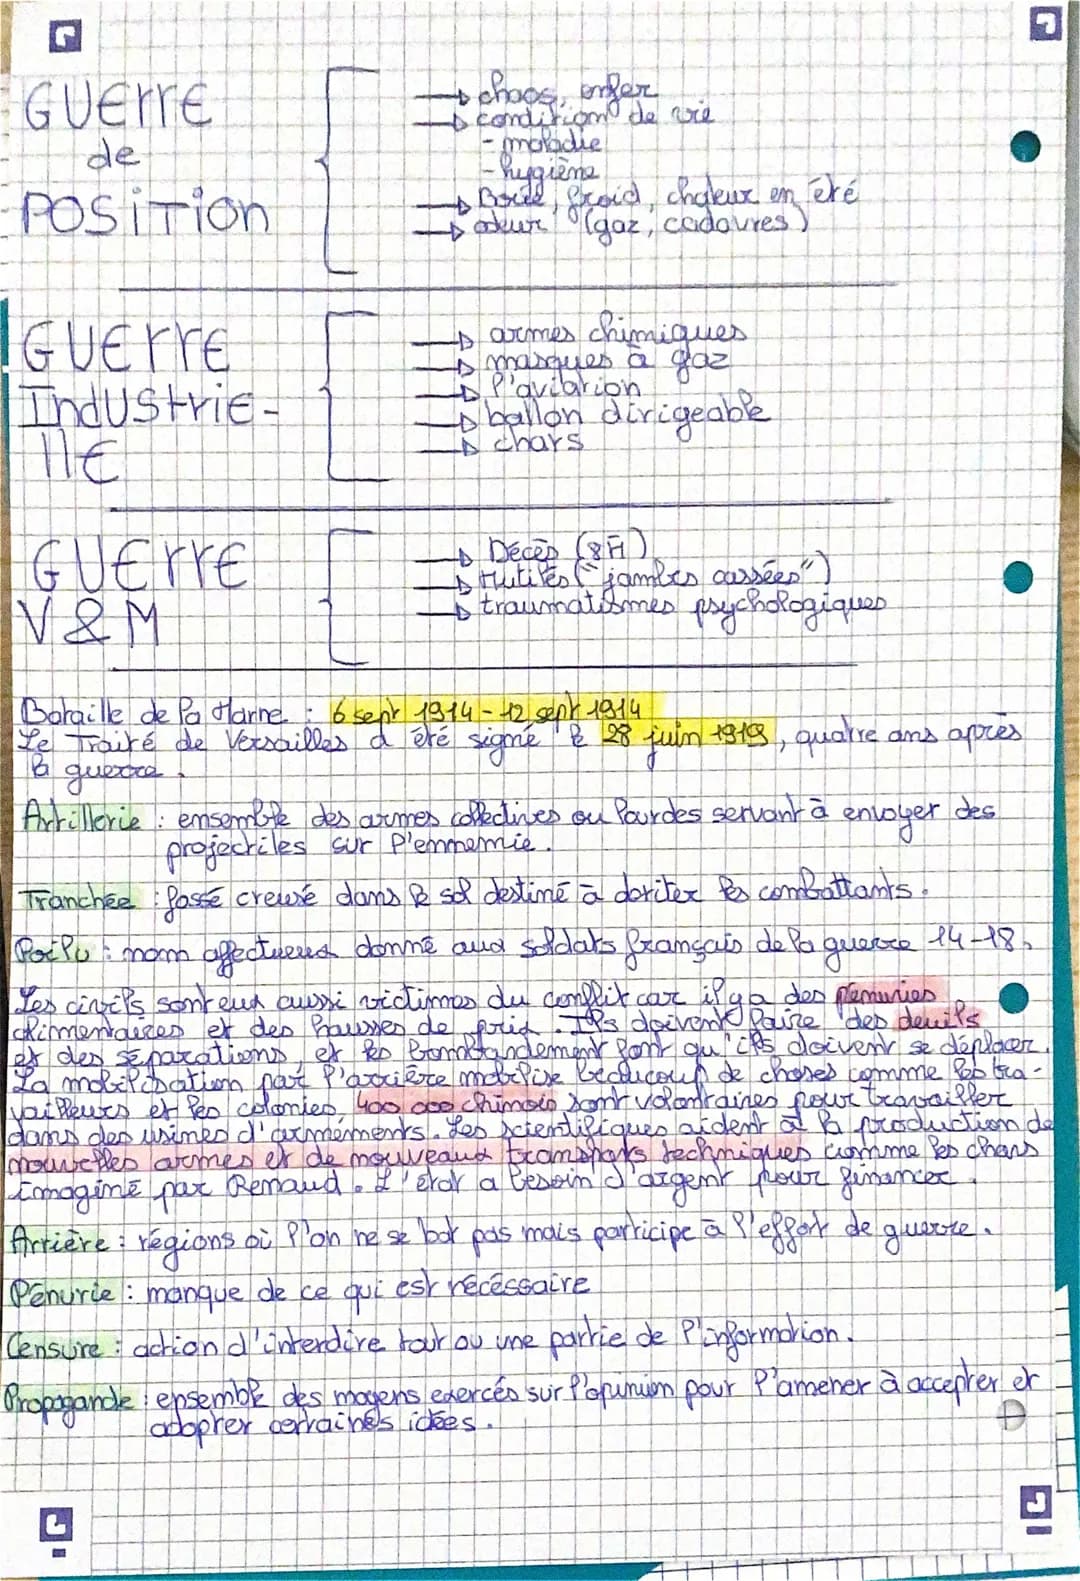 GUERRE
de
POSITION
→ chaos, enfer
→ condition de vie
- maladie
- hygiène
→ Boue, froid, chaleur en été
→ odeur (gaz, cadavres)
GUERRE
Industrie-
llE
→ armes chimiques
→ masques à gaz
→ l'aviation
→ ballon dirigeable
→ chars
GUERRE
V & M
→ Décès (8M)
→ Mutilés ("jambes cassées")
→ traumatismes psychologiques
Bataille de la Marne : 6 sept 1914 - 12 sept 1914
Le Traité de Versailles a été signé le 28 juin 1919, quatre ans après
la guerre.
Artillerie : ensemble des armes collectives ou lourdes servant à envoyer des
projectiles sur l'ennemie.
Tranchée : fossé creusé dans le sol destiné à abriter les combattants.
Poilu : nom affectueux donné aux soldats français de la guerre 14-18.
Les civils sont eux aussi victimes du conflit car il y a des pénuries
alimentaires et des hausses de prix. Ils doivent faire des deuils
et des séparations, et les bombardement font qu'ils doivent se déplacer.
La mobilisation par l'arrière mobilise beaucoup de choses comme les tra-
vailleurs et les colonies, 400 000 chinois sont volontaires pour travailler
dans des usines d'armements. Les scientifiques aident à la production de
nouvelles armes et de nouveaux transports techniques comme les chars
imaginé par Renaud. L'état a besoin d'argent pour financer.
Arrière : régions où l'on ne se bat pas mais participe à l'effort de guerre.
Pénurie : manque de ce qui est nécéssaire
Censure : action d'interdire tout ou une partie de l'information.
Propagande : ensemble des moyens exercés sur l'opinion pour l'amener à accepter et
adopter certaines idées.